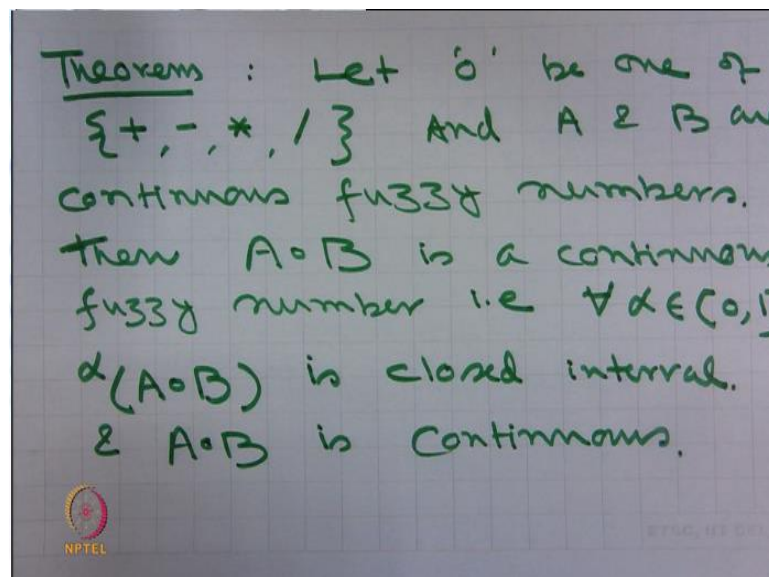 Theorem : Let 'o' be one of
{+, -, *, /} And A & B are
continuous fuzzy numbers.
Then A∘B is a continuous
fuzzy number i.e ∀ α ∈ (0,1]
α(A∘B) is closed interval.
& A∘B is continuous.
NPTEL